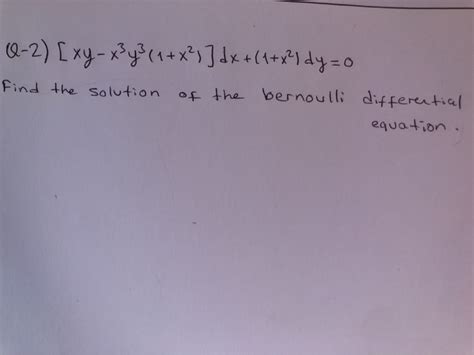 Q-2) [xy-x³y³(1+x²)]dx+(1+x²)dy=0
Find the solution of the bernoulli differential
equation.